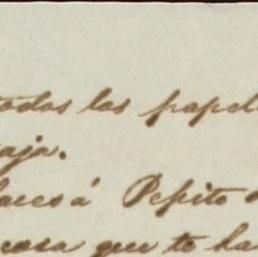 todas las papel
aja.
á Pepito
cosa que te ha